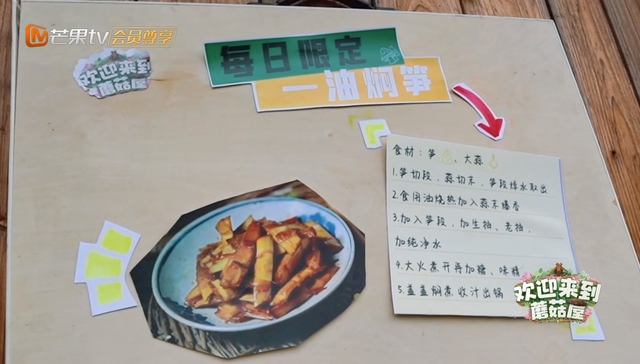 芒果TV 会员尊享
欢迎来到
蘑菇屋
每日限定
一油焖笋
食材：笋、大蒜
1.笋切段，蒜切末，笋段焯水取出
2.食用油烧热加入蒜末爆香
3.加入笋段，加生抽、老抽，
加纯净水
4.大火煮开再加糖、味精
5.盖盖焖煮收汁出锅
欢迎来到
蘑菇屋